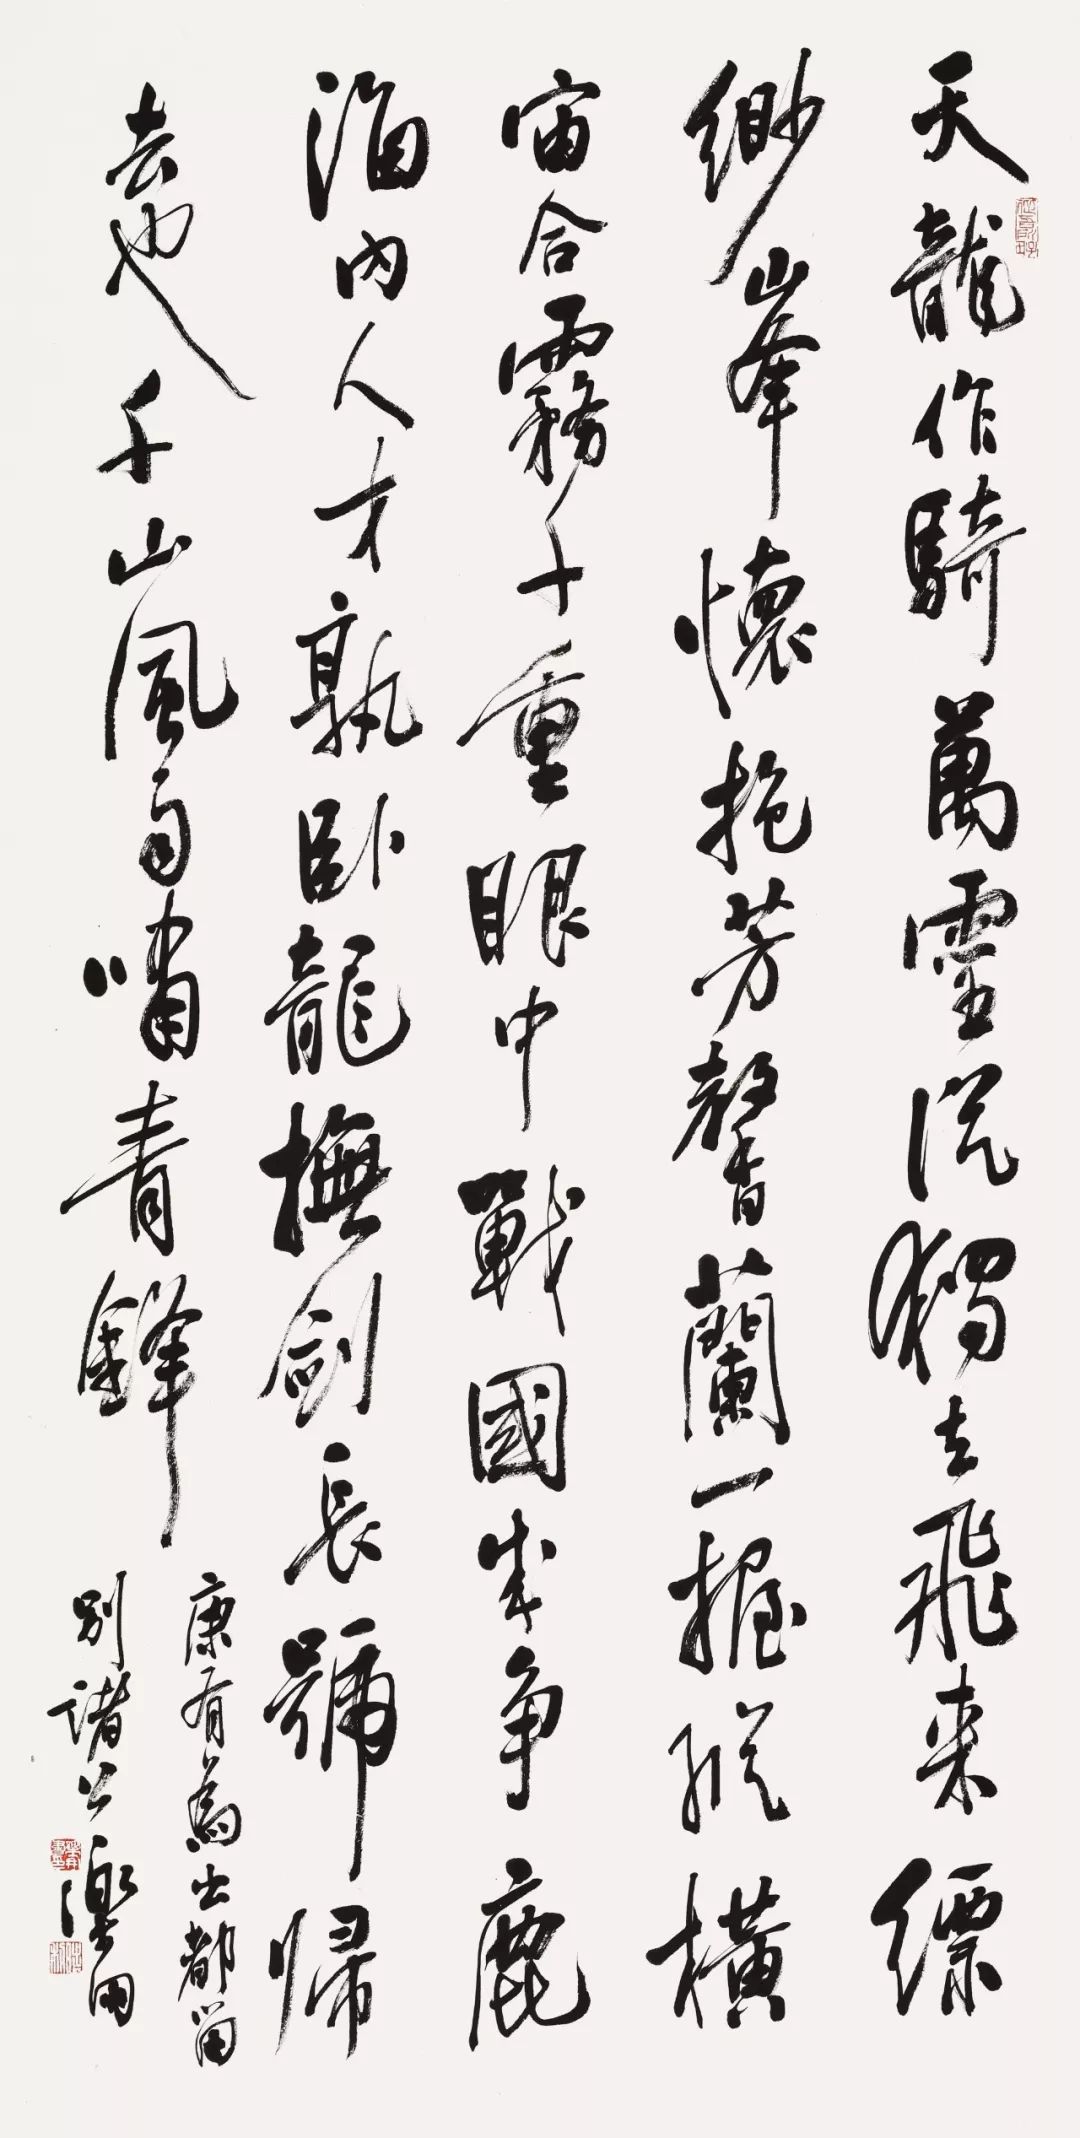 天龍作騎萬靈従獨立飛来縹
緲峯懷抱芳馨蘭一握縱橫
宙合霧千重眼中戰國成争鹿
海内人才孰卧龍撫劍長號歸
去也千山風雨嘯青鋒
康有為出都留
別諸公